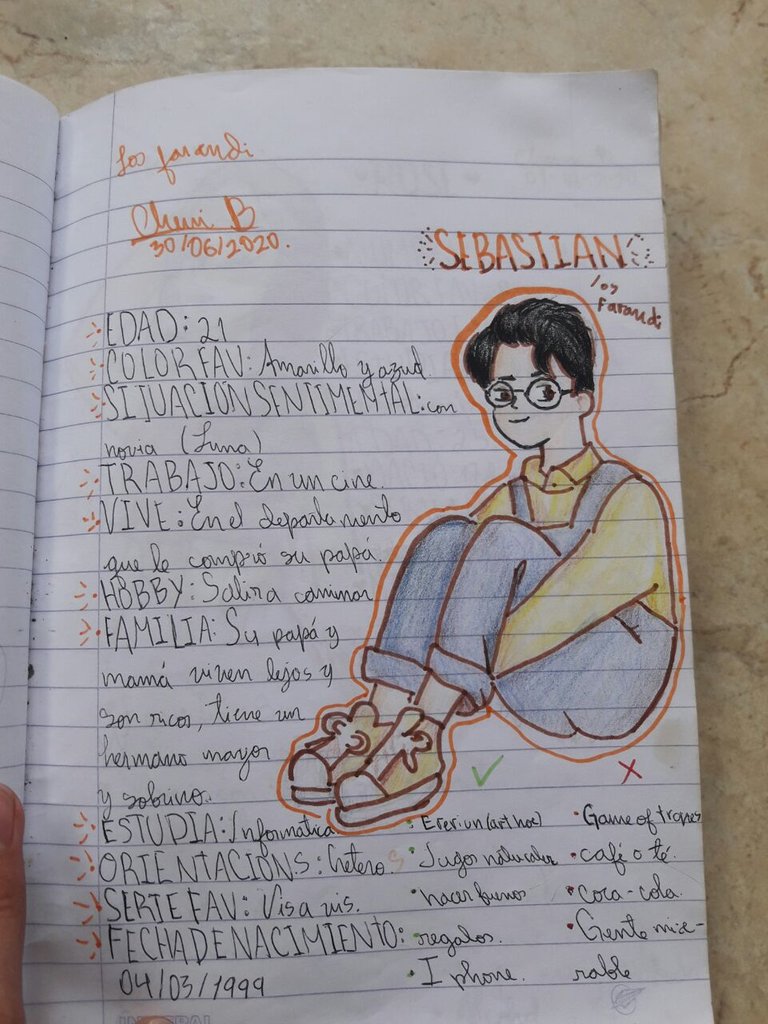 los farandi
Cheni B
30/06/2020.
SEBASTIAN
los
Farandi
EDAD: 21
COLOR FAV: Amarillo y azul.
SITUACION SENTIMENTAL: con
novia (Luna)
TRABAJO: En un cine.
VIVE: En el departamento
que le compró su papá.
HOBBY: Salir a caminar
FAMILIA: Su papá y
mamá viven lejos y
son ricos, tiene un
hermano mayor
y sobrino.
ESTUDIA: Informática
ORIENTACION S: hetero
SERIE FAV: Vis a vis.
FECHA DE NACIMIENTO:
04/03/1999
✓
• un (art hoe)
• Jugos naturales
• hacer buenos
• regalos.
• I phone.
X
• Game of trones
• café o té.
• coca-cola.
• Gente mise-
rable